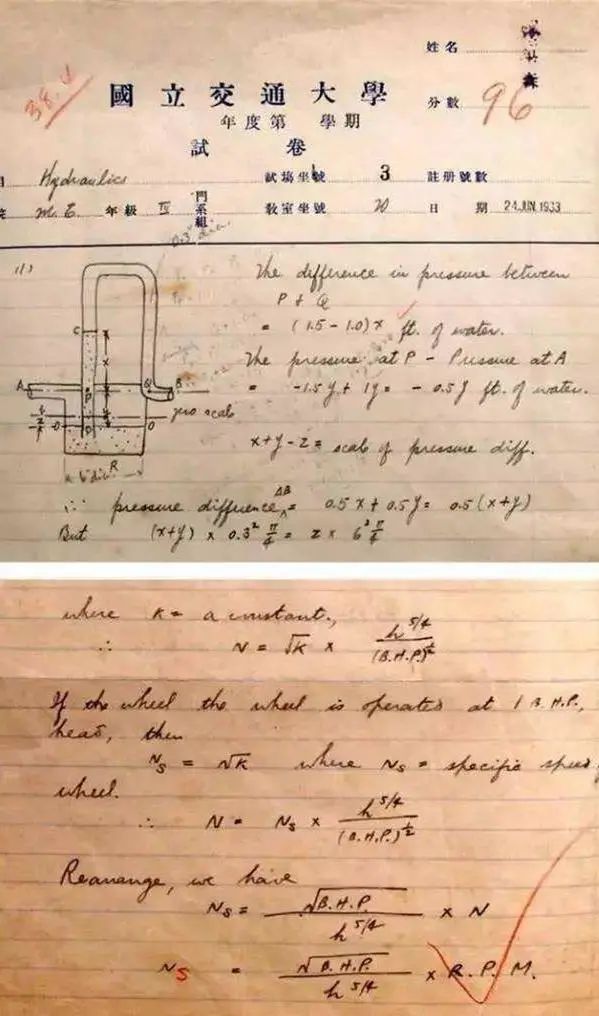 姓名 森
38.4
國立交通大學
分數 96
年度第 學期
試卷
目 Hydraulics 試場坐號 3 註册號數
院 M.E. 年級 IV 門系組 教室坐號 20 日期 24 JUN 1933
0.3" dia.
(1)
The difference in pressure between
P & Q
= (1.5 - 1.0) x ft. of water.
The pressure at P - Pressure at A
= -1.5y + 1y = - 0.5y ft. of water.
C
x
A
P
Q
B
y
zero scale
z
O
O
R
6" dia.
x+y-z = scale of pressure diff.
∴ pressure difference AB = 0.5x + 0.5y = 0.5 (x+y)
But (x+y) × 0.3² π/4 = z × 6² π/4
where K = a constant,
∴ N = √K × h^5/4 / (B.H.P.)^1/2
If the wheel the wheel is operated at 1 B.H.P.,
head, then
Ns = √K where Ns = specific speed
wheel.
∴ N = Ns × h^5/4 / (B.H.P.)^1/2
Rearrange, we have
Ns = √B.H.P. / h^5/4 × N
NS = √B.H.P. / h^5/4 × R.P.M.